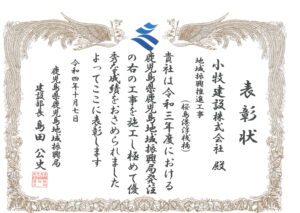 表彰状
小牧建設株式会社 殿
地域振興推進工事
(桜島港浮桟橋)
貴社は令和三年度における
鹿児島県鹿児島地域振興局発注
の右の工事を施工し極めて優
秀な成績をおさめられました
よってここに表彰します
令和四年十月七日
鹿児島県鹿児島地域振興局
建設部長 島田 公史